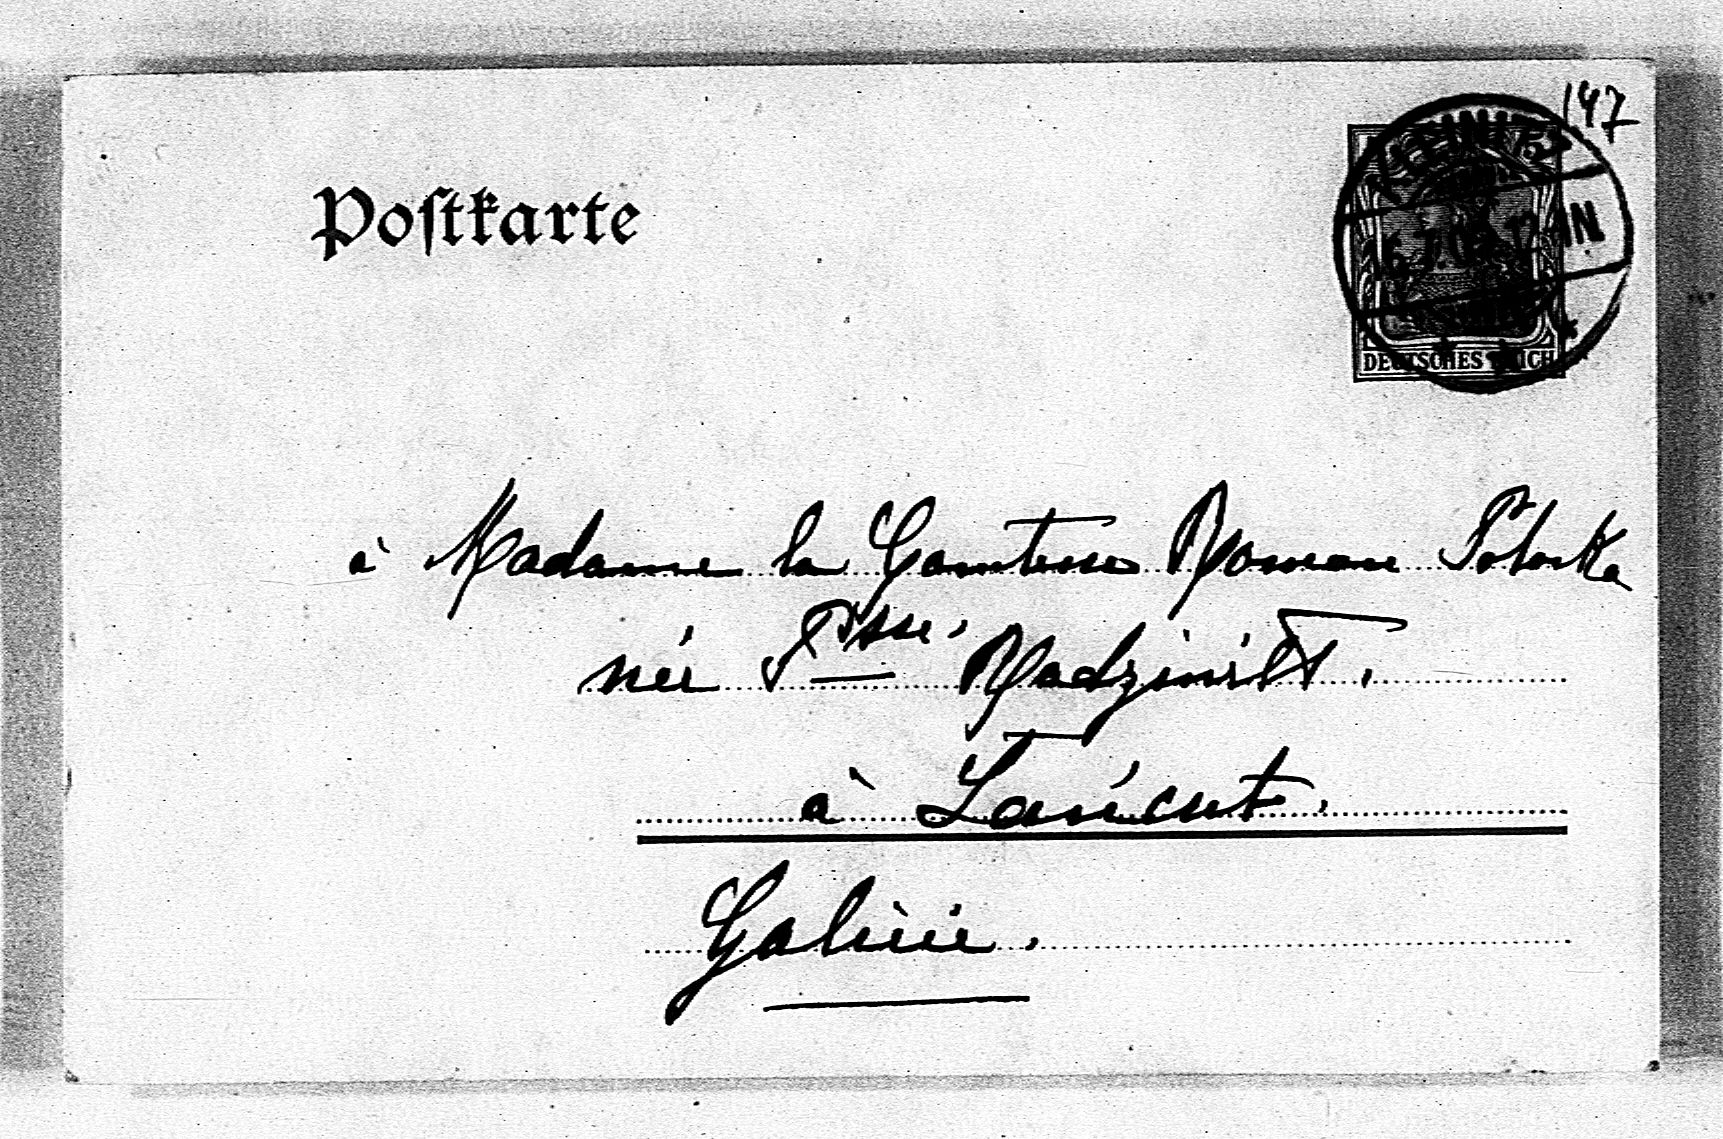 147
Postkarte
DEUTSCHES REICH
à Madame la Comtesse Roman Potocka
née Psse. Radziwiłł.
à Łańcut.
Galicie.